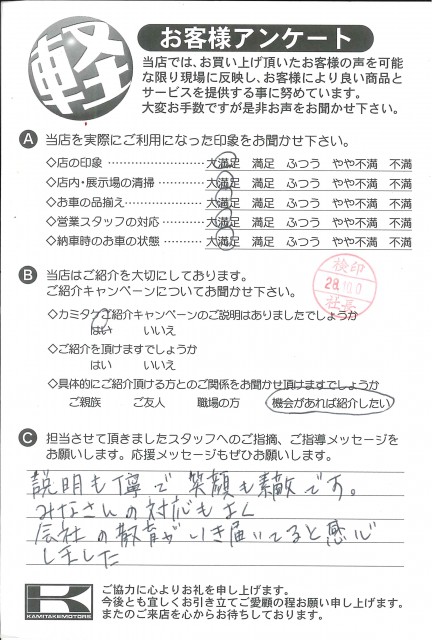 軽
お客様アンケート
当店では、お買い上げ頂いたお客様の声を可能
な限り現場に反映し、お客様により良い商品と
サービスを提供する事に努めています。
大変お手数ですが是非お声をお聞かせ下さい。
A 当店を実際にご利用になった印象をお聞かせ下さい。
◇店の印象 ………………… 大満足 満足 ふつう やや不満 不満
◇店内・展示場の清掃 ………… 大満足 満足 ふつう やや不満 不満
◇お車の品揃え ……………… 大満足 満足 ふつう やや不満 不満
◇営業スタッフの対応 ………… 大満足 満足 ふつう やや不満 不満
◇納車時のお車の状態 ………… 大満足 満足 ふつう やや不満 不満
B 当店はご紹介を大切にしてあります。
ご紹介キャンペーンについてお聞かせ下さい。
検印
社長
◇カミタケご紹介キャンペーンのご説明はありましたでしょうか
はい いいえ
◇ご紹介を頂けますでしょうか
はい いいえ
◇具体的にご紹介頂ける方とのご関係をお聞かせ頂けますでしょうか
ご親族 ご友人 職場の方 機会があれば紹介したい
C 担当させて頂きましたスタッフへのご指摘、ご指導メッセージを
お願いします。応援メッセージもぜひお願いします。
説明も丁寧で 笑顔も素敵です。
みなさんの対応もよく
会社の教育がいき届いてると感心
しました
K
KAMITAKEMOTORS
ご協力に心よりお礼を申し上げます。
今後とも宜しくお引き立てご愛顧の程お願い申し上げます。
またのご来店を心からお待ちしております。